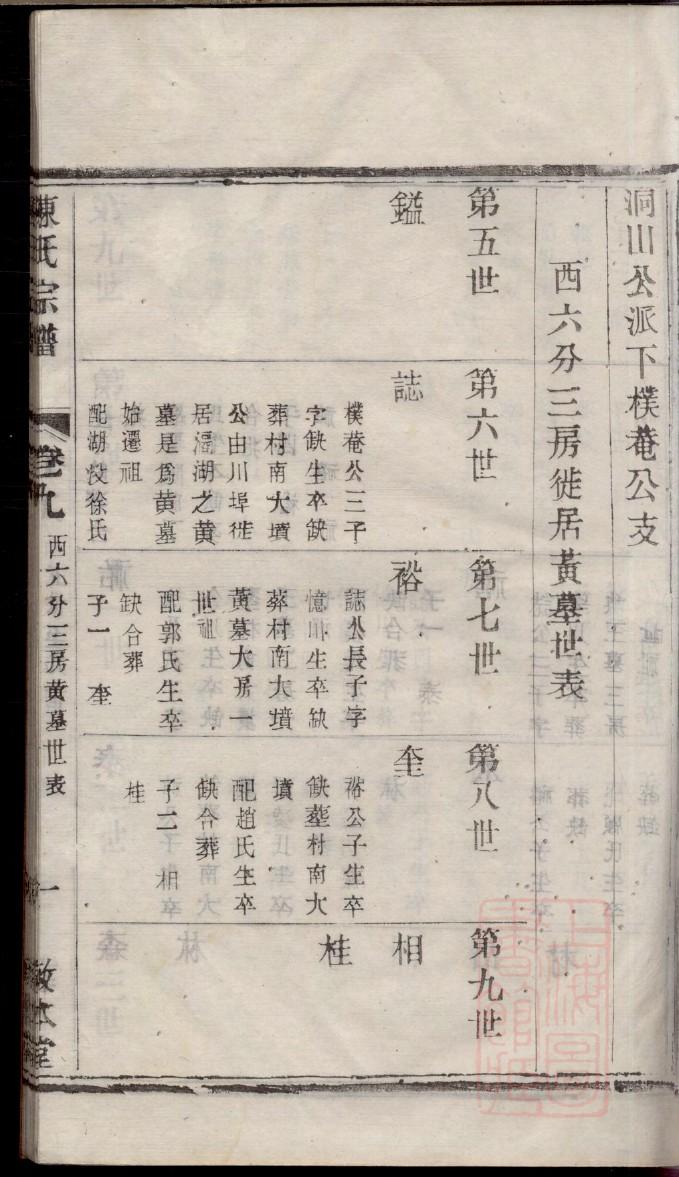 洞山公派下樸菴公支
西六分三房徙居黃墓世表
第五世
鎰
第六世
誌
樸菴公三子
字缺生卒缺
葬村南大墳
公由川埠徙
居滆湖之黄
墓是爲黄墓
始遷祖
配湖㳇徐氏
第七世
裕
誌公長子字
憶川生卒缺
葬村南大墳
黃墓大房一
世祖
配郭氏生卒
缺合葬
子一 奎
第八世
奎
裕公子生卒
缺塟村南大
墳
配趙氏生卒
缺合葬
子二 相
桂
第九世
相
桂
陳氏宗譜
卷九
西六分三房黄墓世表
一
敦本堂